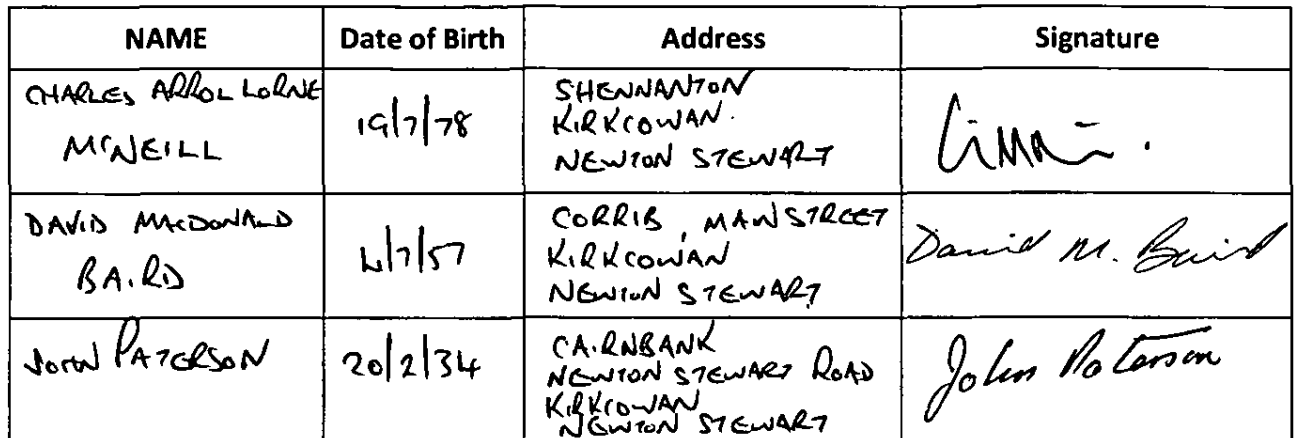 NAME Date of Birth Address Signature
CHARLES ARROL LORNE
MCNEILL
19/7/78
SHENNANTON
KIRKCOWAN.
NEWTON STEWART
DAVID MACDONALD
BAIRD
4/7/57
CORRIB, MAIN STREET
KIRKCOWAN
NEWTON STEWART
David M. Baird
JOHN PATERSON
20/2/34
CAIRNBANK
NEWTON STEWART ROAD
KIRKCOWAN
NEWTON STEWART
John Paterson